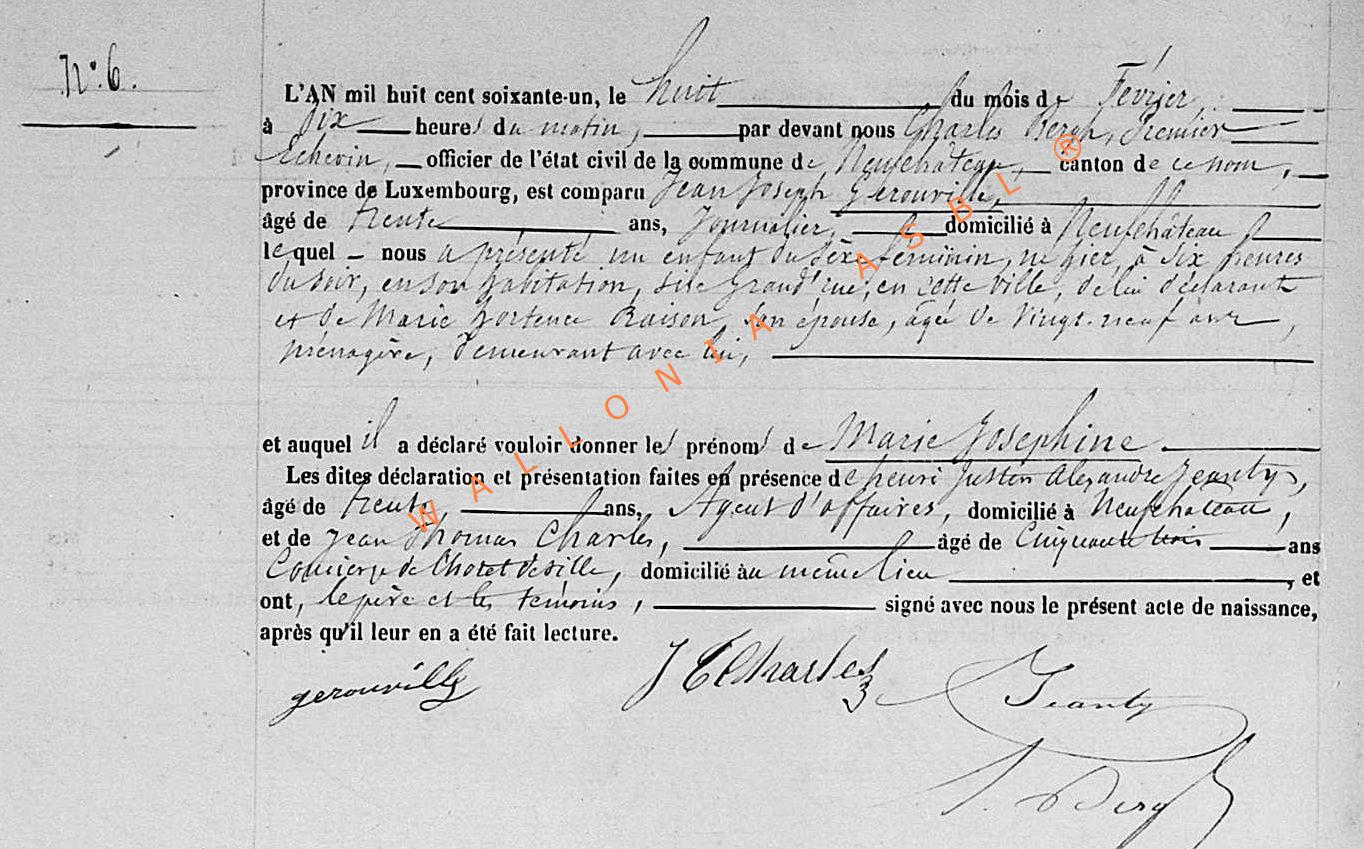 N° 6.
L'AN mil huit cent soixante-un, le huit du mois de Février,
à dix heures du matin, par devant nous Charles Bergh, Premier
Echevin, officier de l'état civil de la commune de Neufchâteau, canton de ce nom,
province de Luxembourg, est comparu Jean Joseph Gerouville,
âgé de trente ans, Journalier, domicilié à Neufchâteau
lequel nous a présenté un enfant du sèxe féminin, né hier, à six heures
du soir, en son habitation, sise grand'rue, en cette ville, de lui déclarant
et de Marie Hortence Raison, son épouse, âgée de vingt-neuf ans,
ménagère, demeurant avec lui,
et auquel il a déclaré vouloir donner les prénoms de Marie Josephine
Les dites déclaration et présentation faites en présence de henri Justin alexandre Jeanty,
âgé de trente, ans, Agent d'affaires, domicilié à Neufchateau,
et de Jean Thomas Charles, âgé de Cinquante trois ans
Concierge de l'hotel de ville, domicilié au même lieu, et
ont, le père et les témoins, signé avec nous le présent acte de naissance,
après qu'il leur en a été fait lecture.
gerouville J T Charles Jeanty
WALLONIA ASBL ®